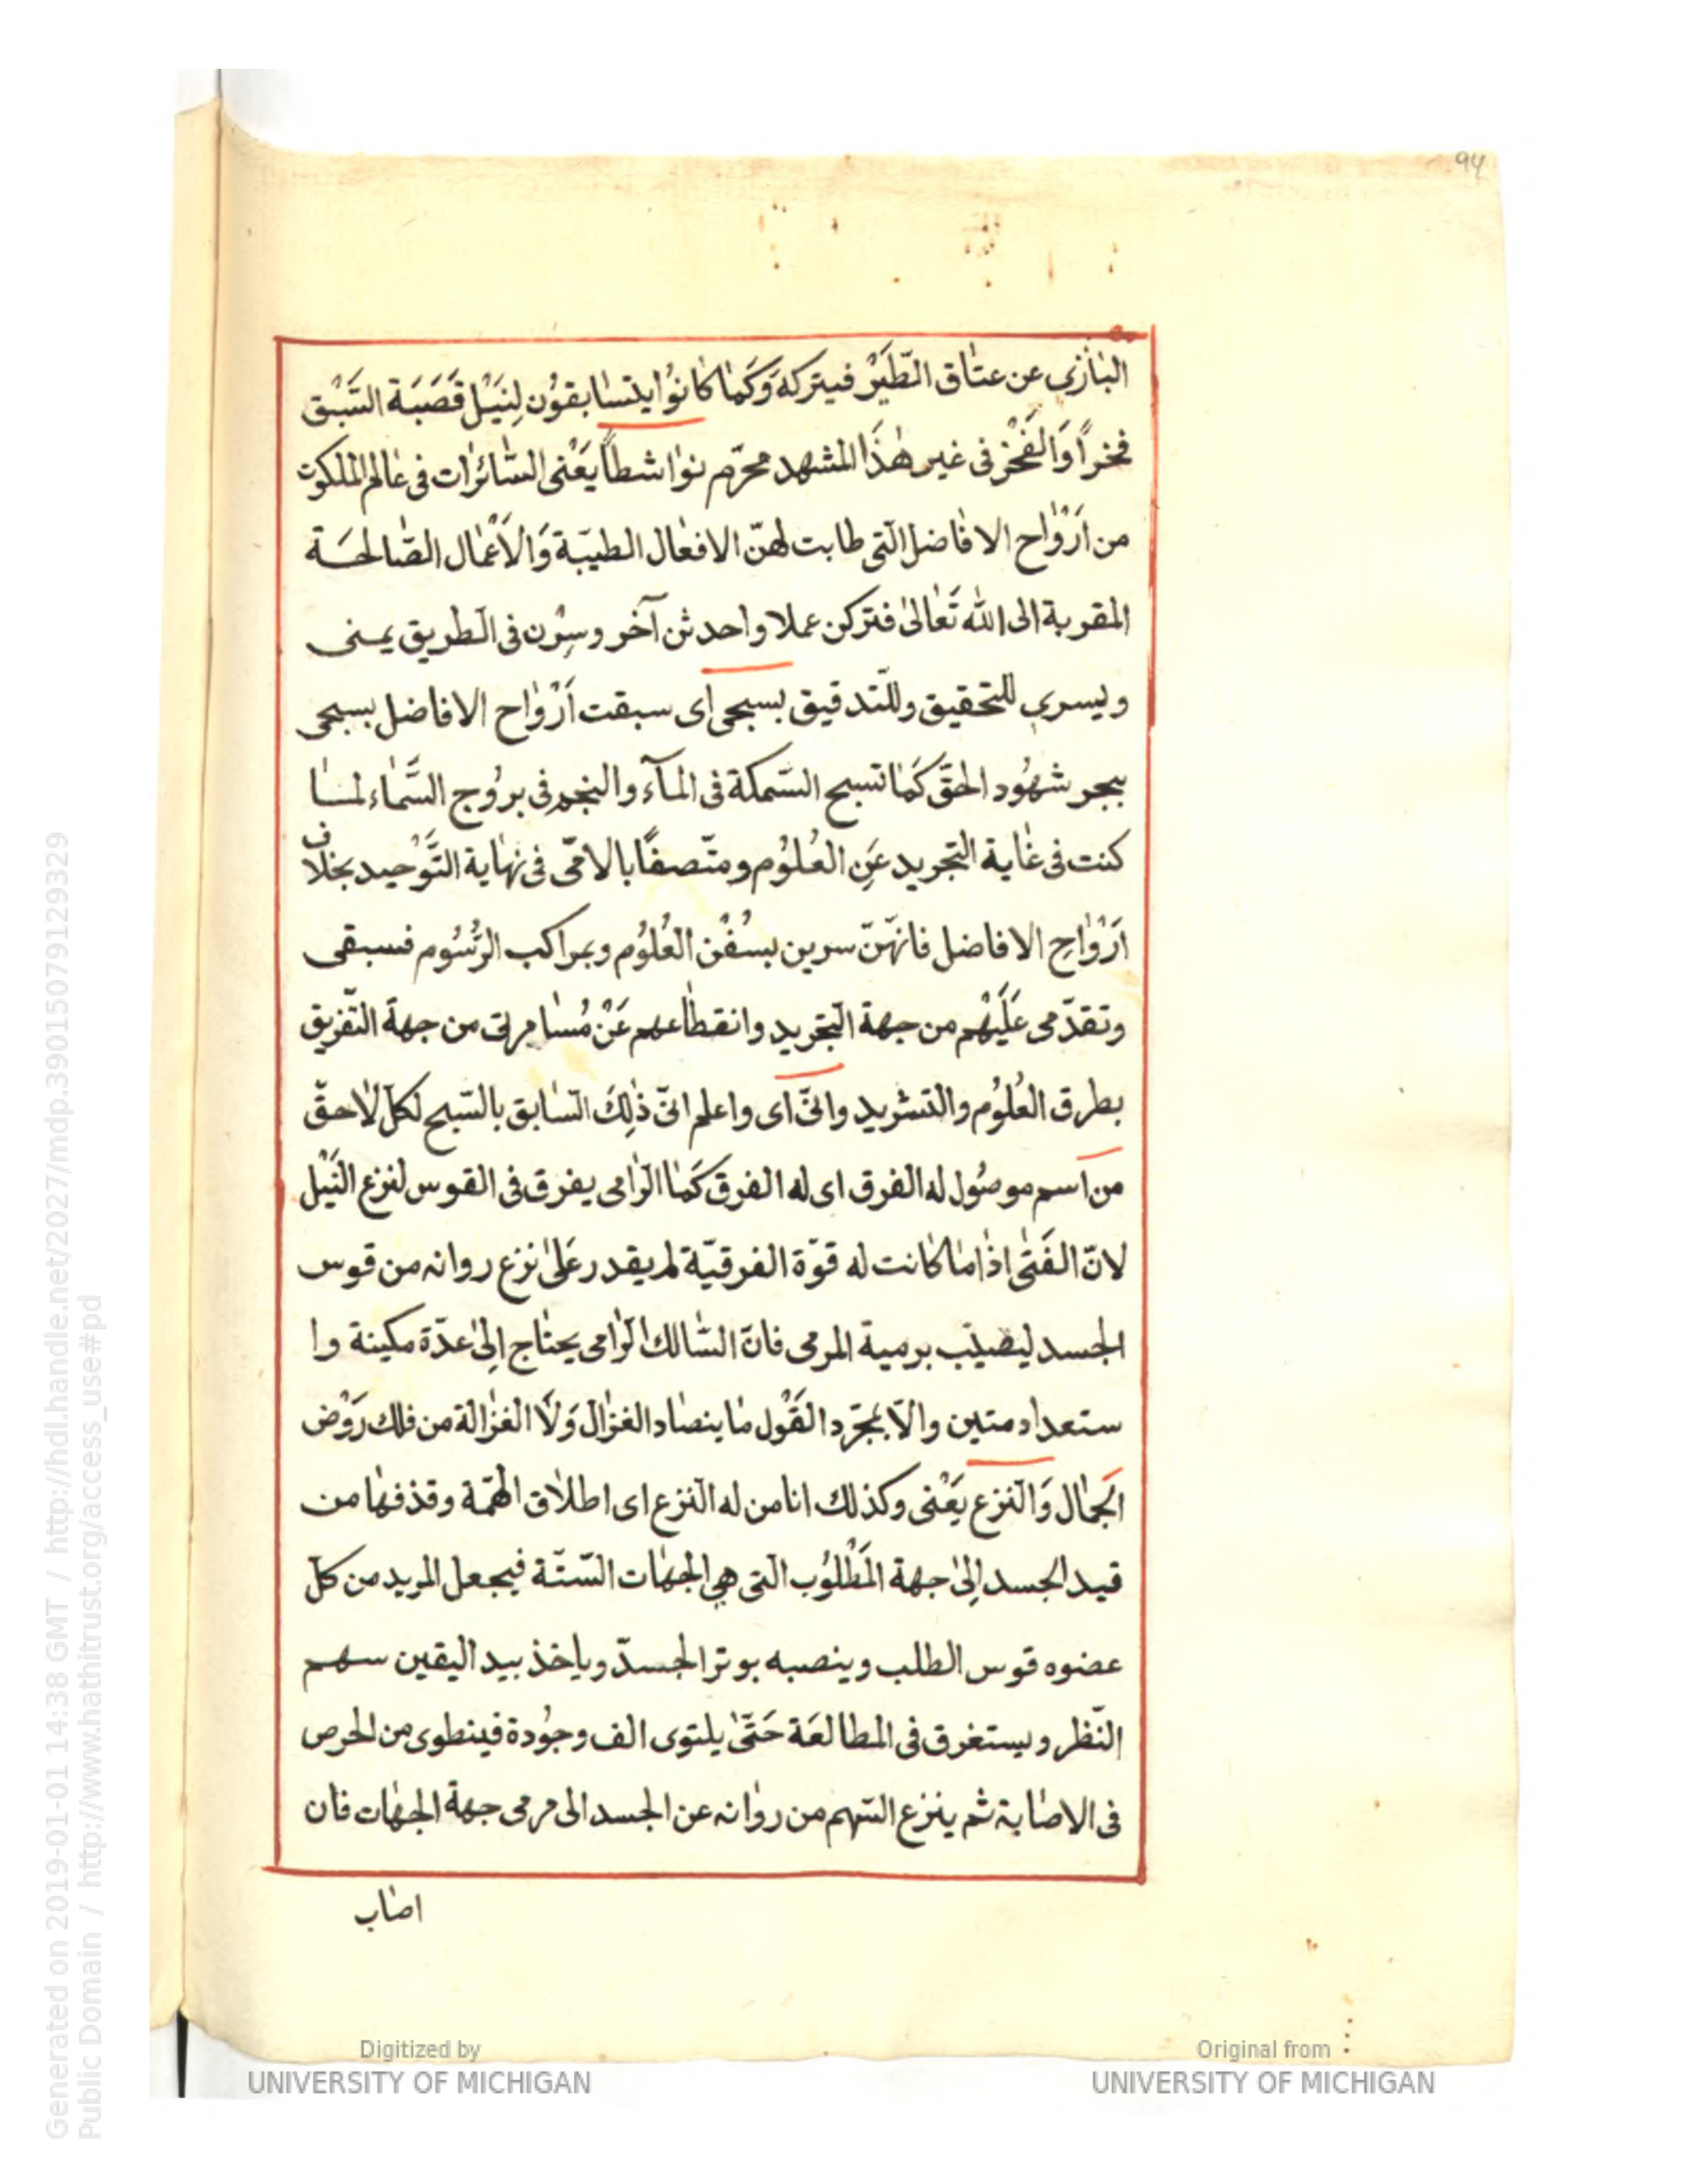 94
البٰازي عن عتٰاق الطَّيْر فيتركه وَكَمٰا كٰانوُا يتسٰابقوُن لِنَيْل قَصَبَة السَّبْق
فخراً وَالْفَخْر فى غير هٰذَا المشهد محرّم نوٰاشطاً يَعْنى السّٰائرٰات فى عٰالم الملكوت
من اَرْوٰاح الافٰاضل الّتى طابت لهنّ الافعٰال الطيبّة وَالْاَعْمٰال الصّٰالحسَة
المقربة الى اللّٰه تَعٰالىٰ فتركن عملا واحدثن آخر وسِرْن فى الطريق يمنى
ويسري للتحقيق وللتّدقيق بسبحى اى سبقت اَرْوٰاح الافاضل بسبحى
ببحر شهُود الحقّ كَمٰا تسبح السّمكة فى المآء والنجم فى برُوج السَّمٰاء لمسٰا
كنت فى غٰاية التجريد عَنِ العُلوُم ومتّصفًا بالامّى فى نهٰاية التَّوْحيد بخلاف
اَرْوٰاحِ الافاضل فانهّنّ سرين بسُفْن العُلوُم وبمراكب الرّسُوم فسبقى
وتقدّمى عَلَيْهم من جهة التّجريد وانقطٰاعهم عَنْ مُسٰامرتى من جهة التّفريق
بطرق العُلوُم والتشريد وانّى اى واعلم انّى ذٰلِكَ السّٰابق بالسّبح لكلّ لٰاحقّ
من اسم موصُول له الفرق اى له الفرق كَمٰا الرّٰامى يفرق فى القوس لنزع النَّبْل
لانّ الفَتٰى اذٰا مٰا كٰانت له قوّة الفرقيّة لم يقدر عَلىٰ نزع روانه من قوس
الجسد ليصيب برمية المرمى فانّ السّٰالك الرّٰامى يحتٰاج اِلىٰ عدّة مكينة وا
ستعداد متين والّا بمجرّد القَوْل مٰا ينصٰاد الغزٰال وَلَا الغزٰالة من فلك رَوْض
الَجمٰال وَالنزع يَعْنى وكذلك انا من له النزع اى اطلٰاق الهمّة وقذفهٰا من
قيد الجسد اِلىٰ جهة المَطْلوُب التى هى الجهٰات السّتّة فيجعل المريد من كلّ
عضوه قوس الطلب وينصبه بوتر الجسدّ وياخذ بيد اليقين سهم
النّظر ويستغرق فى المطالعَة حَتّىٰ يلتوى الف وجُودة فينطوى من الحرص
فى الاصٰابة ثم ينزع السّهم من روٰانه عن الجسد الى مرمى جهة الجهٰات فان
اصٰاب
Generated on 2019-01-01 14:38 GMT / http://hdl.handle.net/2027/mdp.39015079129329
Public Domain / http://www.hathitrust.org/access_use#pd
Digitized by
UNIVERSITY OF MICHIGAN
Original from
UNIVERSITY OF MICHIGAN